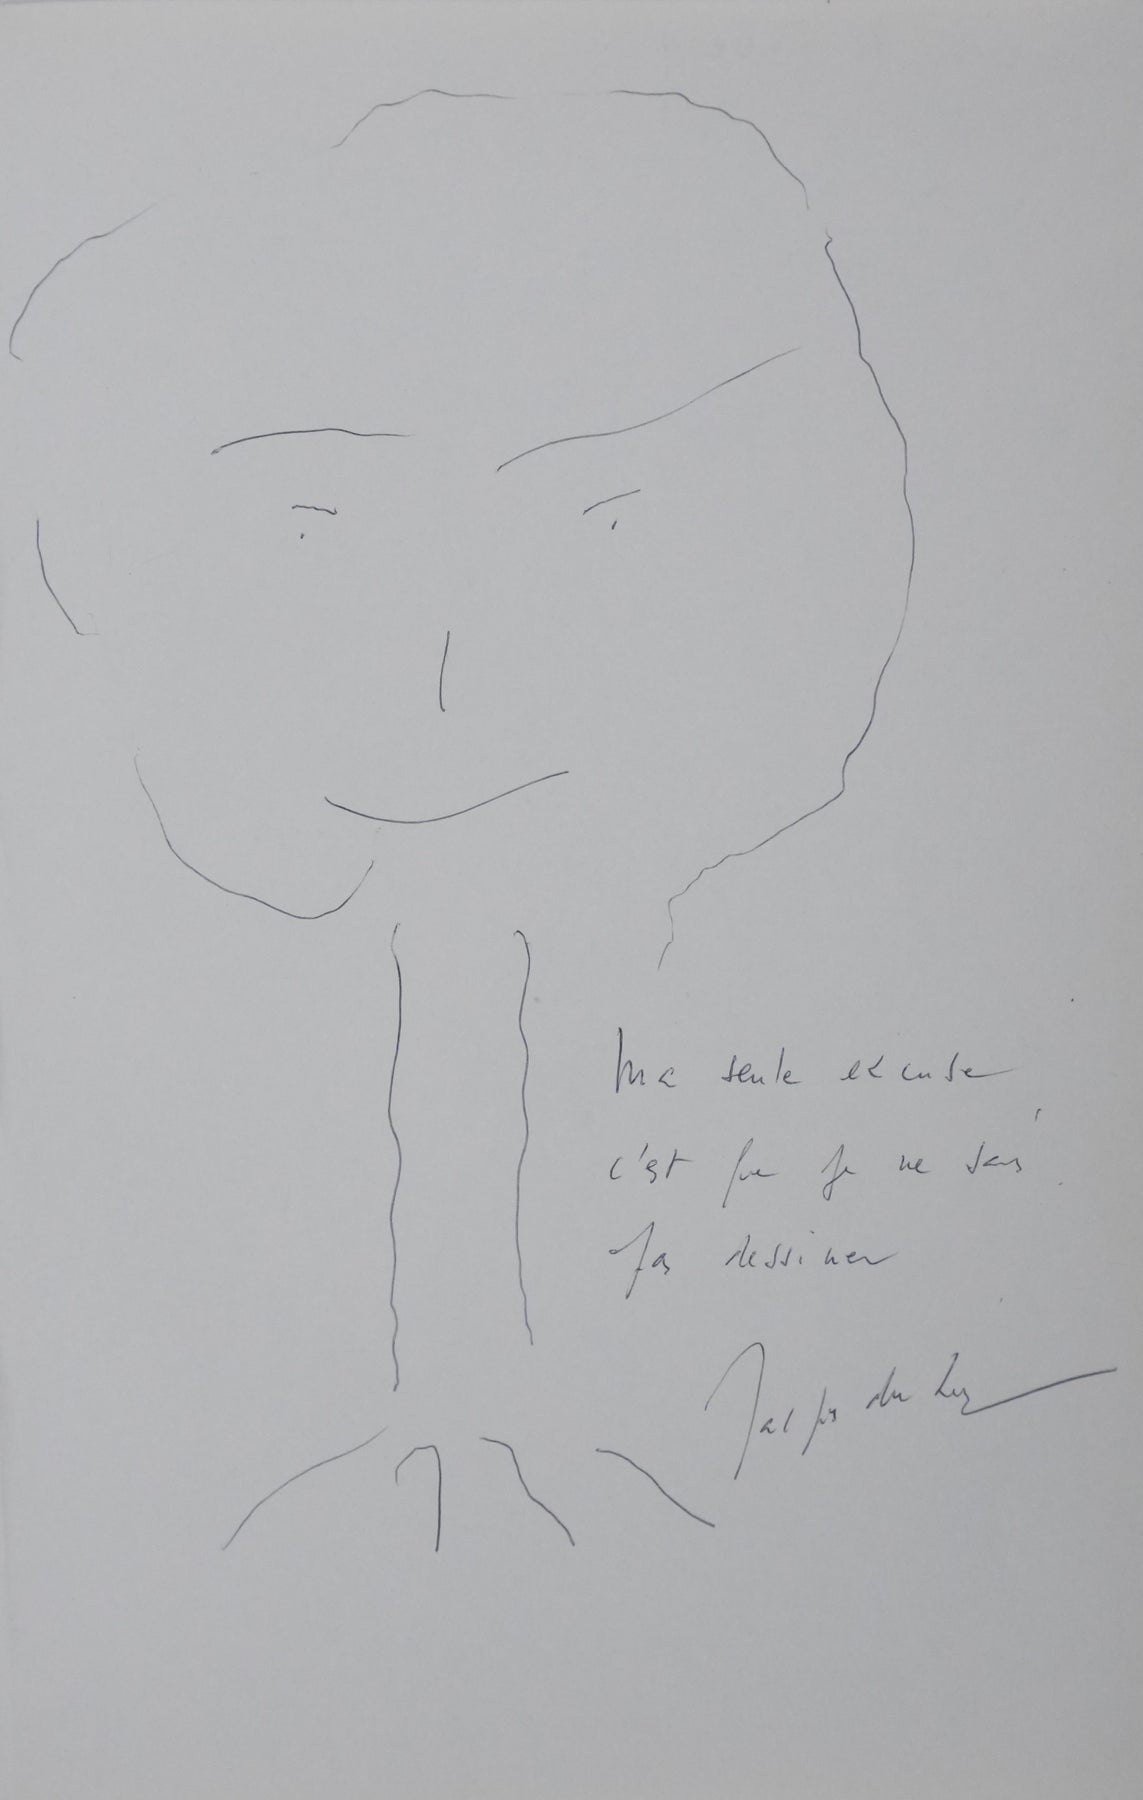 Ma seule excuse
c'est que je ne sais
pas dessiner
Jacques